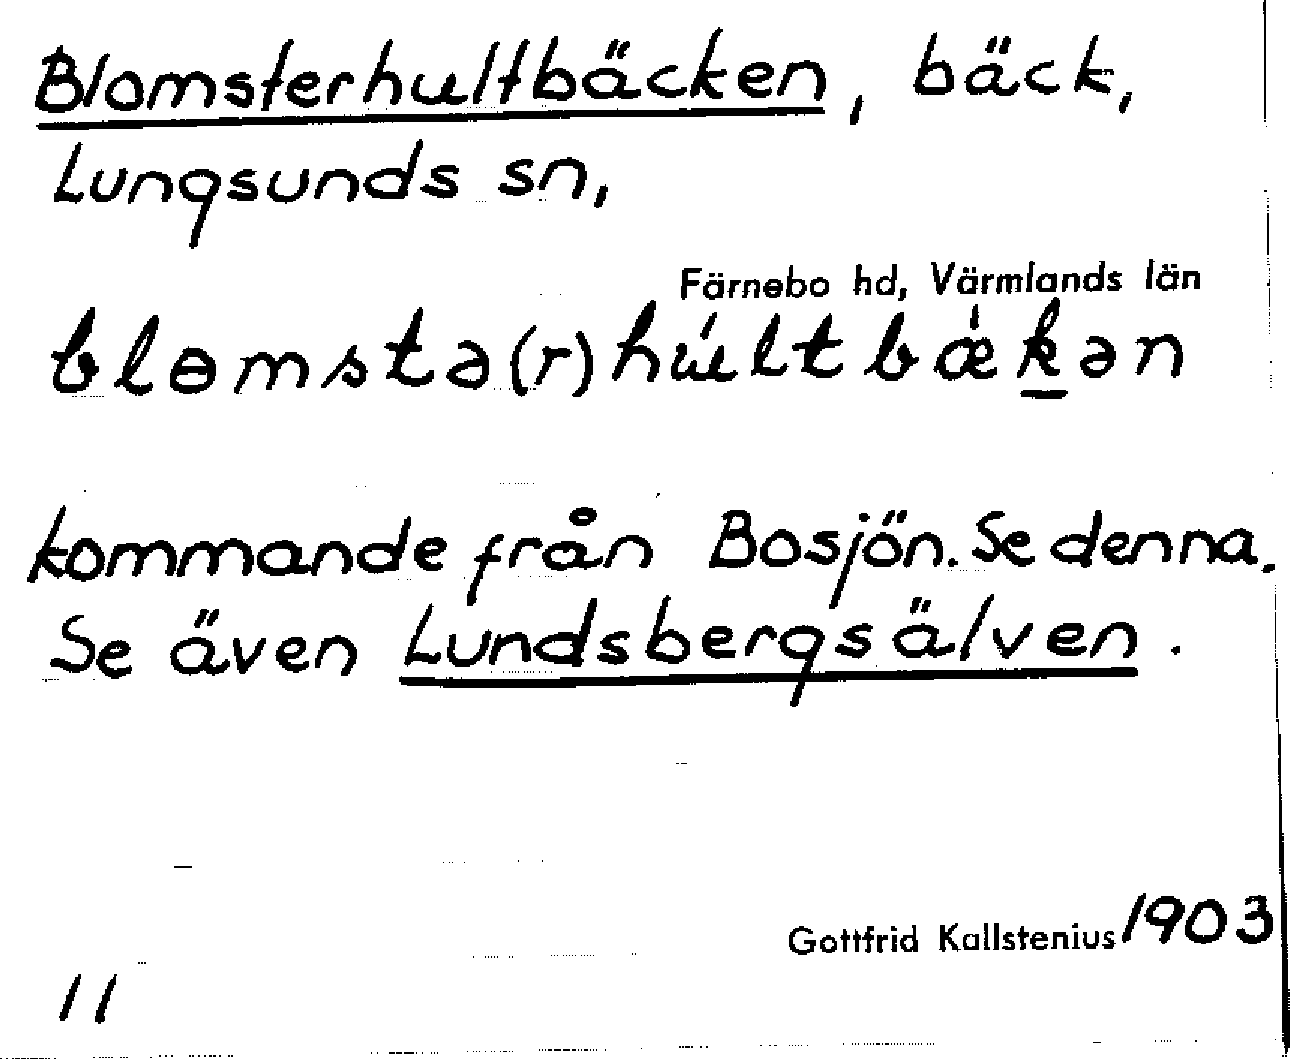 Blomsterhultbäcken, bäck,
Lungsunds sn,
Färnebo hd, Värmlands län
blɵmstə(r)húltbǽk̲ən
kommande från Bosjön. Se denna.
Se även Lundsbergsälven.
Gottfrid Kallstenius 1903
11